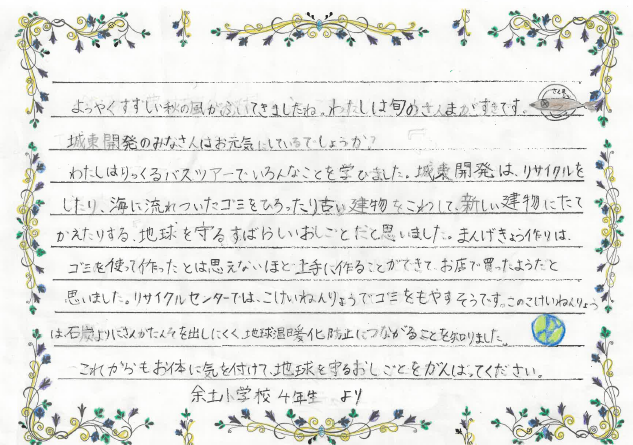 ようやくすずしい秋の風がふいてきましたね。わたしは旬のさんまがすきです。
さんま
城東開発のみなさんはお元気にしているでしょうか?
わたしはりっくるバスツアーでいろんなことを学びました。城東開発は、リサイクルを
したり、海に流れついたゴミをひろったり古い建物をこわして、新しい建物にたて
かえたりする、地球を守るすばらしいおしごとだと思いました。まんげきょう作りは、
ゴミを使って作ったとは思えないほど上手に作ることができて、お店で買ったようだと
思いました。リサイクルセンターでは、こけいねんりょうでゴミをもやすそうです。このこけいねんりょう
は石炭よりにさんかたんそを出しにくく、地球温暖化防止につながることを知りました。
これからもお体に気を付けて、地球を守るおしごとをがんばってください。
余土小学校4年生 より